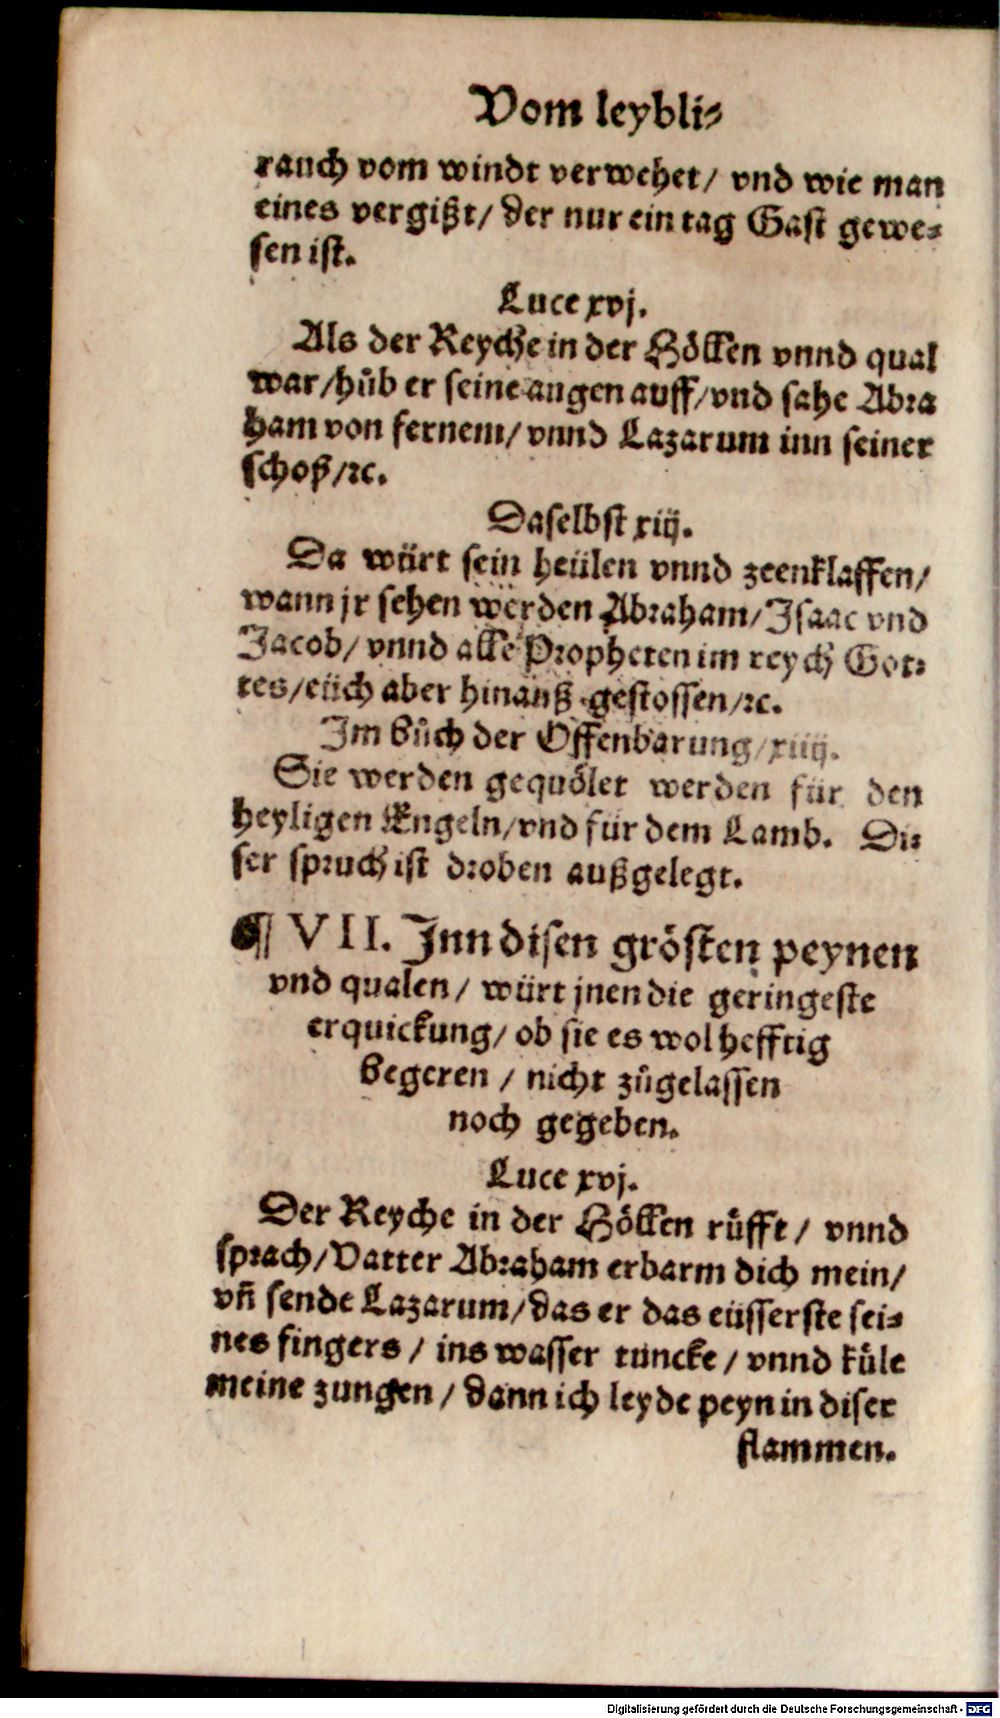 Vom leybli⸗
rauch vom windt verwehet/ vnd wie man
eines vergißt/ der nur ein tag Gast gewe⸗
sen ist.
Luce xvj.
Als der Reyche in der Höllen vnnd qual
war/hůb er seine augen auff/vnd sahe Abra
ham von fernem/ vnnd Lazarum inn seiner
schoß/ꝛc.
Daselbst xiij.
Da würt sein heülen vnnd zeenklaffen/
wann jr sehen werden Abraham/Isaac vnd
Jacob/ vnnd alle Propheten im reych Got⸗
tes/eüch aber hinauß gestossen/ꝛc.
Im bůch der Offenbarung/xiiij.
Sie werden gequölet werden für den
heyligen Engeln/vnd für dem Lamb. Di⸗
ser spruch ist droben außgelegt.
¶ VII. Inn disen grösten peynen
vnd qualen/ würt jnen die geringeste
erquickung/ ob sie es wol hefftig
begeren / nicht zůgelassen
noch gegeben.
Luce xvj.
Der Reyche in der Höllen růfft/ vnnd
sprach/Vatter Abraham erbarm dich mein/
vñ sende Lazarum/das er das eüsserste sei⸗
nes fingers / ins wasser tuncke/ vnnd küle
meine zungen/ dann ich leyde peyn in diser
flammen.
Digitalisierung gefördert durch die Deutsche Forschungsgemeinschaft - DFG